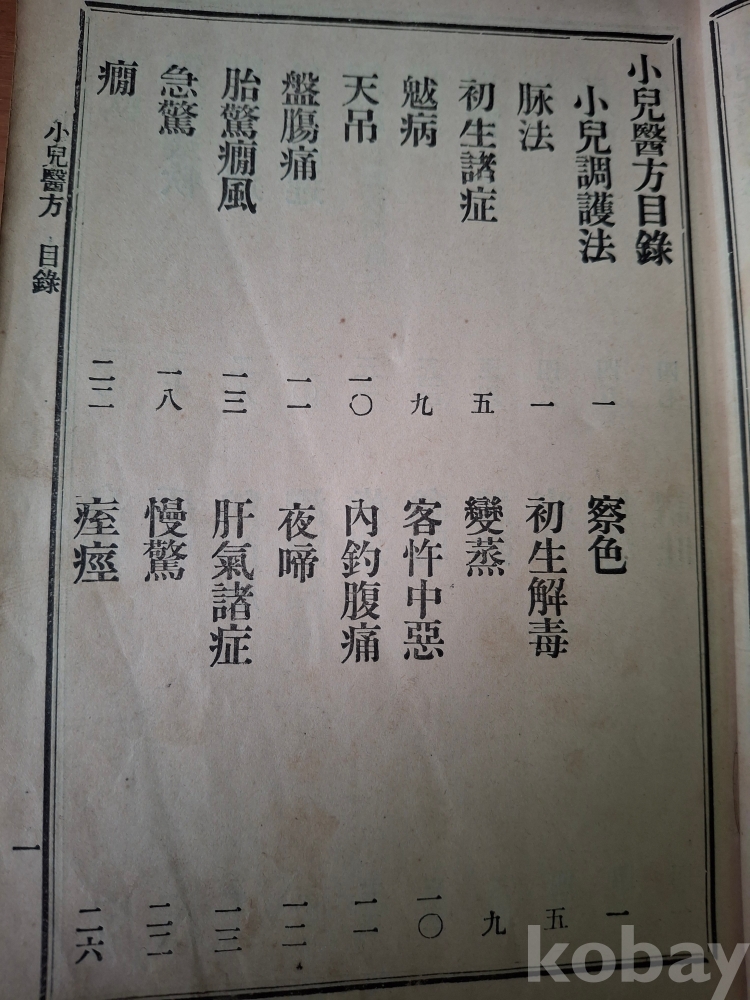 小兒醫方目錄
小兒調護法 一 察色 一
脉法 一 初生解毒 五
初生諸症 五 變蒸 九
魃病 九 客忤中惡 一〇
天吊 一〇 內釣腹痛 一一
盤膓痛 一一 夜啼 一二
胎驚癇風 一三 肝氣諸症 一三
急驚 一八 慢驚 二二
癇 二二 痓痙 二六
小兒醫方 目錄 一
kobay